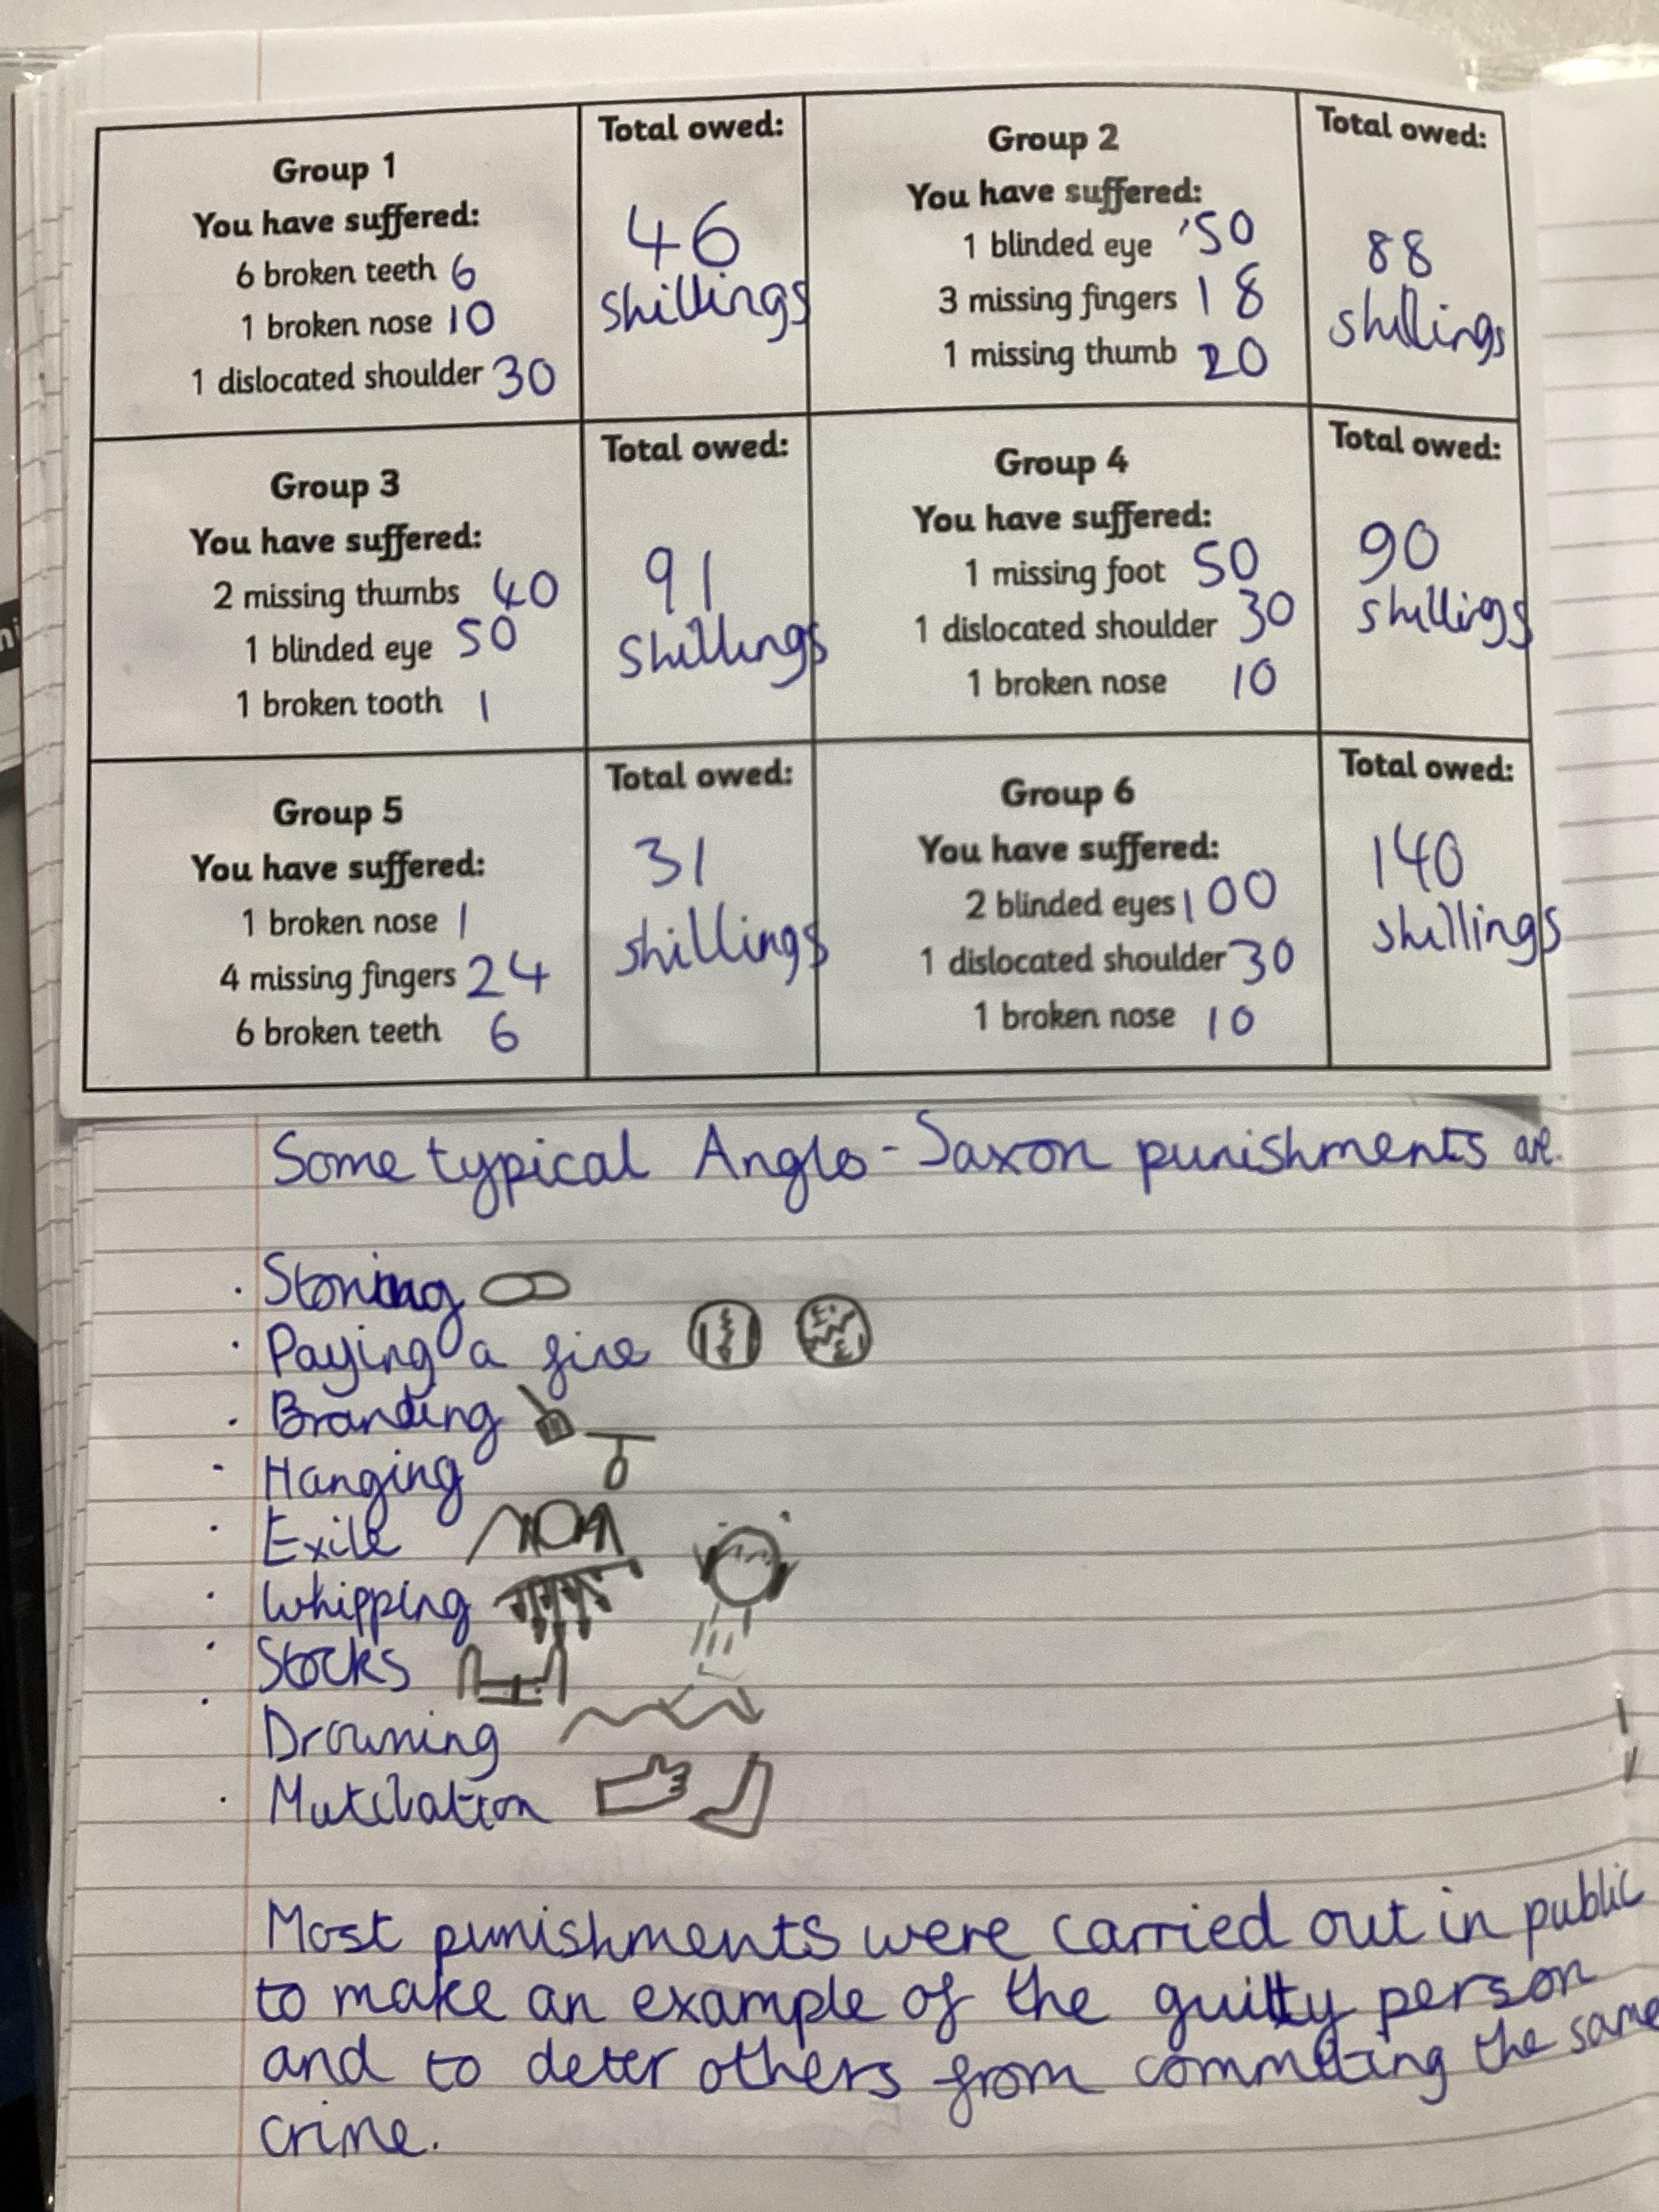 Group 1
You have suffered:
6 broken teeth 6
1 broken nose 10
1 dislocated shoulder 30
Total owed:
46
shillings
Group 2
You have suffered:
1 blinded eye 50
3 missing fingers 18
1 missing thumb 20
Total owed:
88
shillings
Group 3
You have suffered:
2 missing thumbs 40
1 blinded eye 50
1 broken tooth 1
Total owed:
91
shillings
Group 4
You have suffered:
1 missing foot 50
1 dislocated shoulder 30
1 broken nose 10
Total owed:
90
shillings
Group 5
You have suffered:
1 broken nose 1
4 missing fingers 24
6 broken teeth 6
Total owed:
31
shillings
Group 6
You have suffered:
2 blinded eyes 100
1 dislocated shoulder 30
1 broken nose 10
Total owed:
140
shillings
Some typical Anglo-Saxon punishments are.
· Stoning
· Paying a fine
· Branding
- Hanging
· Exile
· Whipping
· Stocks
· Drowning
· Mutilation
Most punishments were carried out in public
to make an example of the guilty person
and to deter others from commiting the same
crime.